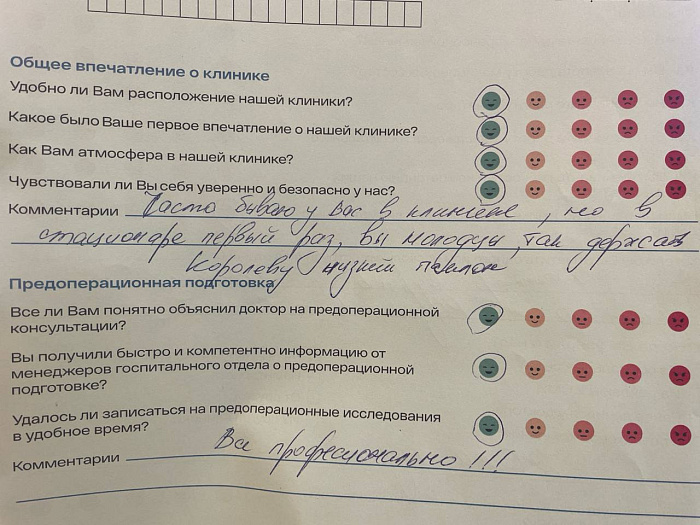 Общее впечатление о клинике
Удобно ли Вам расположение нашей клиники?
Какое было Ваше первое впечатление о нашей клинике?
Как Вам атмосфера в нашей клинике?
Чувствовали ли Вы себя уверенно и безопасно у нас?
Комментарии Часто бываю у Вас в клинике, но в
стационаре первый раз, вы молодцы, так держать
Королеву низкий поклон
Предоперационная подготовка
Все ли Вам понятно объяснил доктор на предоперационной
консультации?
Вы получили быстро и компетентно информацию от
менеджеров госпитального отдела о предоперационной
подготовке?
Удалось ли записаться на предоперационные исследования
в удобное время?
Комментарии Все професионально !!!